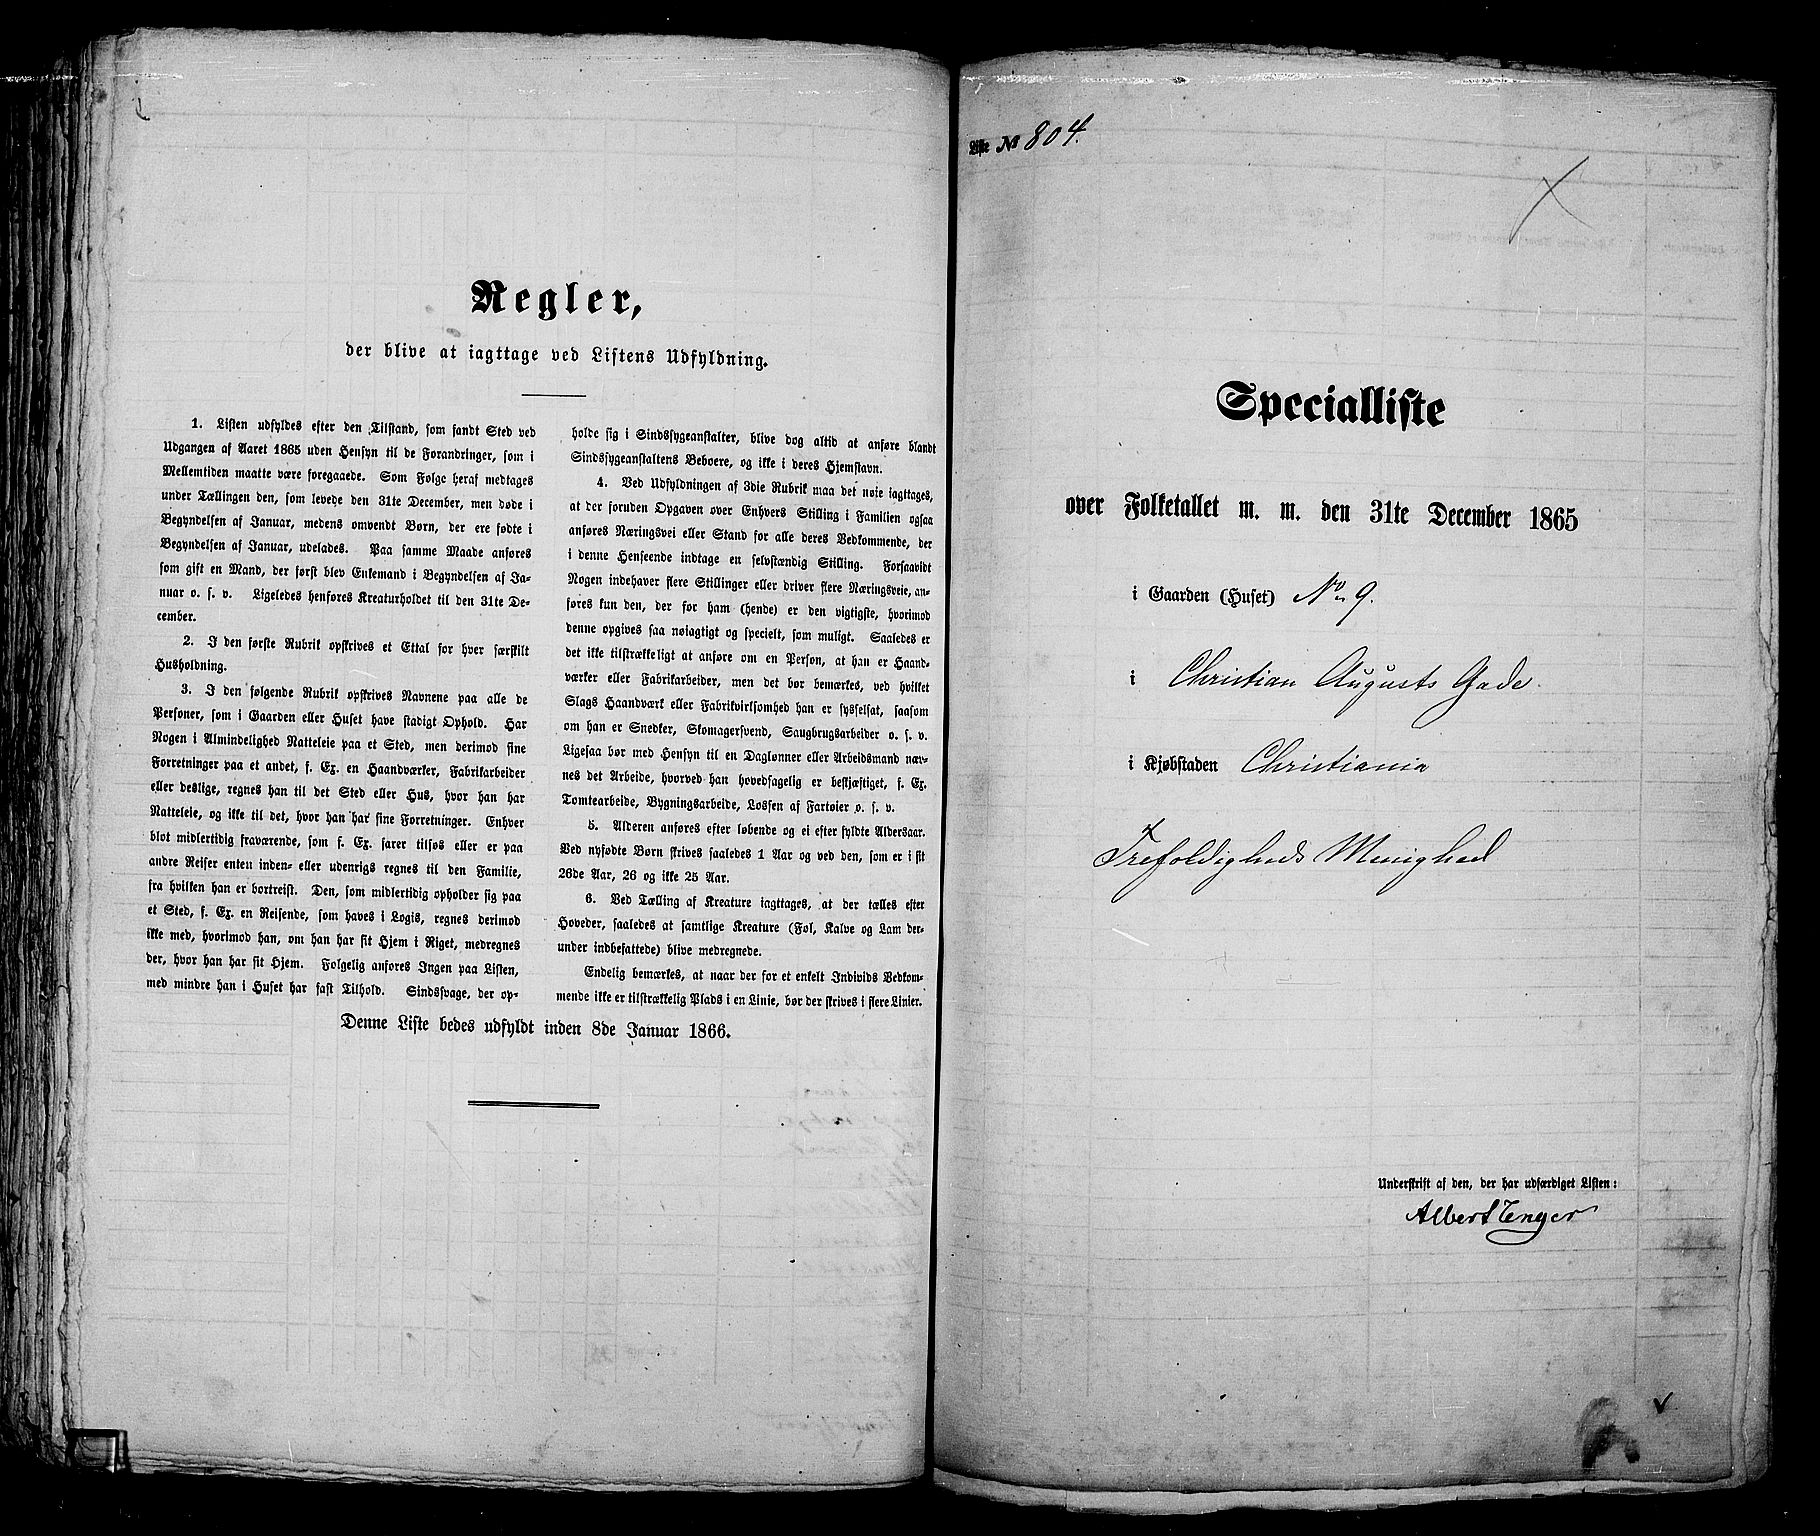 Regler,
der blive at iagttage ved Listens Udfyldning.
1. Listen udfyldes efter den Tilstand, som fandt Sted ved
Udgangen af Aaret 1865 uden Hensyn til de Forandringer, som i
Mellemtiden maatte være foregaaede. Som Følge heraf medtages
under Tællingen den, som levede den 31te December, men døde i
Begyndelsen af Januar, medens omvendt Børn, der ere fødte i
Begyndelsen af Januar, udelades. Paa samme Maade anføres
som gift en Mand, der først blev Enkemand i Begyndelsen af Ja-
nuar o. s. v. Ligeledes henføres Kreaturholdet til den 31te De-
cember.
2. I den første Rubrik opskrives et Ettal for hver særskilt
Husholdning.
3. I den følgende Rubrik opskrives Navnene paa alle de
Personer, som i Gaarden eller Huset have stadigt Ophold. Har
Nogen i Almindelighed Natteleie paa et Sted, men derimod sine
Forretninger paa et andet, f. Ex. en Haandværker, Fabrikarbeider
eller deslige, regnes han til det Sted eller Hus, hvor han har
Natteleie, og ikke til det, hvor han har sine Forretninger. Enhver
blot midlertidig fraværende, som f. Ex. farer tilsøs eller er paa
andre Reiser enten inden- eller udenrigs regnes til den Familie,
fra hvilken han er bortreist. Den, som midlertidig opholder sig paa
et Sted, f. Ex. en Reisende, som haves i Logis, regnes derimod
ikke med, hvorimod han, om han har sit Hjem i Riget, medregnes
der, hvor han har sit Hjem. Følgelig anføres Ingen paa Listen,
med mindre han i Huset har fast Tilhold. Sindssvage, der op-
holde sig i Sindssygeanstalter, blive dog altid at anføre blandt
Sindssygeanstaltens Beboere, og ikke i deres Hjemstavn.
4. Ved Udfyldningen af 3die Rubrik maa det nøie iagttages,
at der foruden Opgaven over Enhvers Stilling i Familien ogsaa
anføres Næringsvei eller Stand for alle deres Vedkommende, der
i denne Henseende indtage en selvstændig Stilling. Forsaavidt
Nogen indehaver flere Stillinger eller driver flere Næringsveie, an-
føres kun den, der for ham (hende) er den vigtigste, hvorimod
denne opgives saa nøiagtigt og specielt, som muligt. Saaledes er
det ikke tilstrækkeligt at anføre om en Person, at han er Haand-
værker eller Fabrikarbeider, men det bør bemærkes, ved hvilket
Slags Haandværk eller Fabrikvirksomhed han er sysselsat, saasom
om han er Snedker, Skomagersvend, Saugbrugsarbeider o. s. v.
Ligesaa bør med Hensyn til en Daglønner eller Arbeidsmand næv-
nes det Arbeide, hvorved han hovedsagelig er beskjæftiget, f. Ex.
Tomtearbeide, Bygningsarbeide, Lossen af Fartøier o. s. v.
5. Alderen anføres efter løbende og ei efter fyldte Aldersaar.
Ved nyfødte Børn skrives saaledes 1 Aar og ved den, som er i sit
26de Aar, 26 og ikke 25 Aar.
6. Ved Tælling af Kreature iagttages, at der tælles efter
Hoveder, saaledes at samtlige Kreature (Føl, Kalve og Lam der-
under indbefattede) blive medregnede.
Endelig bemærkes, at naar der for et enkelt Individs Vedkom-
mende ikke er tilstrækkelig Plads i en Linie, bør der skrives i flere Linier.
Denne Liste bedes udfyldt inden 8de Januar 1866.
Liste № 804.
Specialliste
over Folketallet m. m. den 31te December 1865
i Gaarden (Huset) No 9.
i Christian Augusts Gade.
i Kjøbstaden Christiania
Trefoldigheds Menighed
Underskrift af den, der har udfærdiget Listen:
Albert Enger